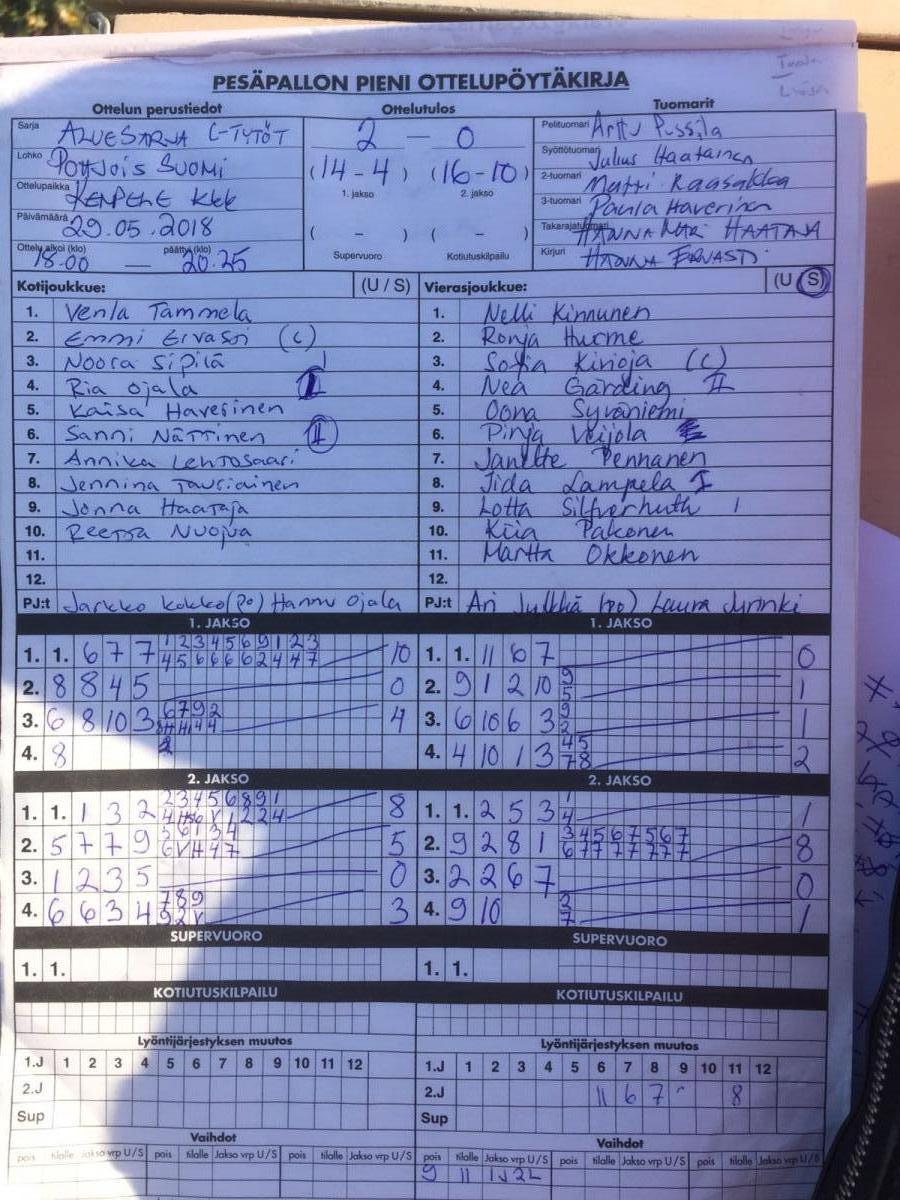 PESÄPALLON PIENI OTTELUPÖYTÄKIRJA
Ottelun perustiedot Ottelutulos Tuomarit
Sarja ALUESARJA C-TYTÖT 2 — 0 Pelituomari Arttu Pussila
Lohko POHJOIS SUOMI (14-4) (16-10) Syöttötuomari Julius Haatainen
Ottelupaikka KEMPELE KKK 1. jakso 2. jakso 2-tuomari Matti Raasakka
Päivämäärä 29.05.2018 ( – ) ( – ) 3-tuomari Paula Haverinen
Takarajatuomari HANNA MARI HAATAJA
Ottelu alkoi (klo) 18.00 — päättyi (klo) 20.25 Supervuoro Kotiutuskilpailu Kirjuri HANNA ERVASTI
Kotijoukkue: (U / S) Vierasjoukkue: (U / S)
1. Venla Tammela 1. Nelli Kinnunen
2. Emmi Ervasti (c) 2. Ronja Hurme
3. Noora Sipilä I 3. Sofia Kirioja (c)
4. Ria Ojala 4. Nea Garding II
5. Kaisa Haverinen 5. Oona Syväniemi
6. Sanni Nättinen II 6. Pinja Veijola
7. Annika Lehtosaari 7. Janette Pennanen
8. Jennina Tauriainen 8. Iida Lampela I
9. Jonna Haataja 9. Lotta Silfverhuth I
10. Reetta Nuojua 10. Kiia Pakonen
11. 11. Martta Okkonen
12. 12.
PJ:t Jarkko Kokko (po) Hannu Ojala PJ:t Ari Julkhä (po) Laura Jurinki
1. JAKSO 1. JAKSO
1. 1. 6 7 7 10 1. 1. 11 6 7 0
2. 8 8 4 5 0 2. 9 1 2 10 9 5 1
3. 6 8 10 3 4 3. 6 10 6 3 9 2 1
4. 8 4. 4 10 1 3 45 78 2
2. JAKSO 2. JAKSO
1. 1. 1 3 2 8 1. 1. 2 5 3 1 4 1
2. 5 7 7 9 5 2. 9 2 8 1 34567567 67777777 8
3. 1 2 3 5 0 3. 2 2 6 7 0
4. 6 6 3 4 789 92V 3 4. 9 10 1
SUPERVUORO SUPERVUORO
1. 1. 1. 1.
KOTIUTUSKILPAILU KOTIUTUSKILPAILU
Lyöntijärjestyksen muutos Lyöntijärjestyksen muutos
1.J 1 2 3 4 5 6 7 8 9 10 11 12 1.J 1 2 3 4 5 6 7 8 9 10 11 12
2.J 2.J 11 6 7 8
Sup Sup
Vaihdot Vaihdot
pois tilalle Jakso vrp U/S pois tilalle Jakso vrp U/S pois tilalle Jakso vrp U/S pois tilalle Jakso vrp U/S pois tilalle Jakso vrp U/S pois tilalle Jakso vrp U/S
9 11 1J2L